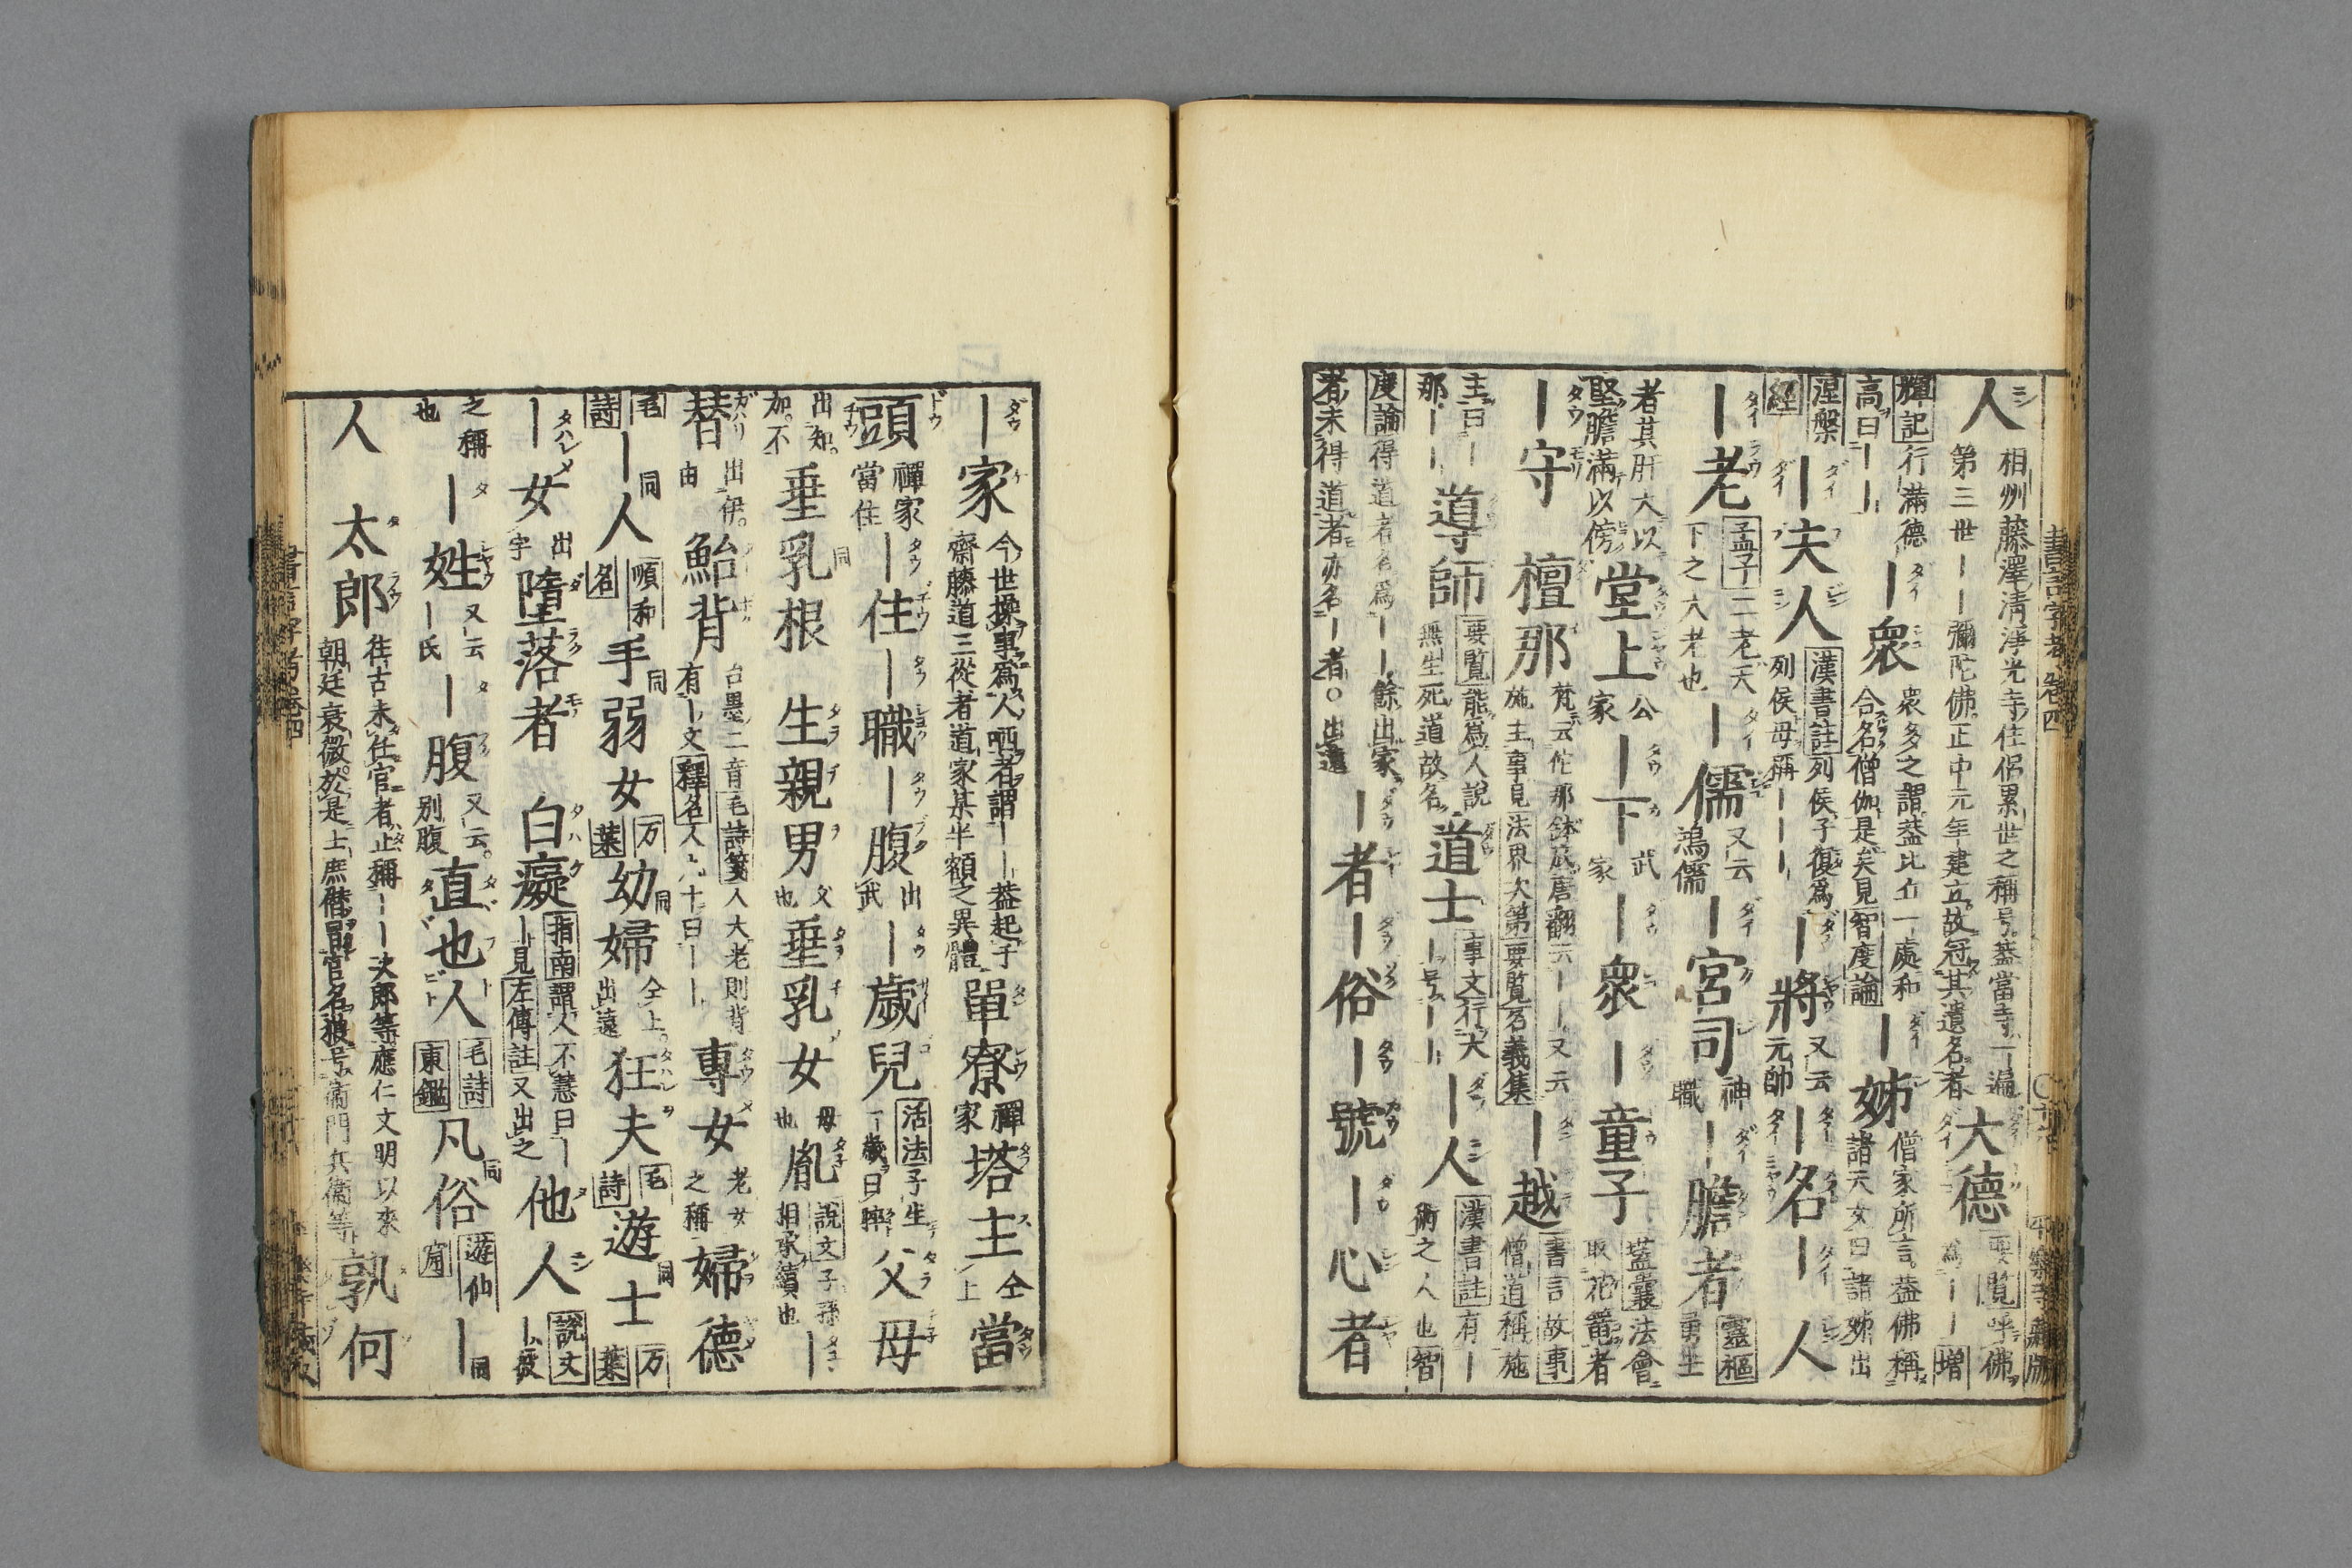 人 相州藤澤清淨光寺住侶累世之稱号蓋當寺一遍
第三世｜｜彌陀佛正中元年建立故冠其遺名者 大德 要覧呼佛
爲｜｜增
輝記行滿德
高曰｜｜ ｜衆 衆多之謂蓋比丘一處和
合名僧伽是矣見智度論 ｜姊 僧家所言蓋佛稱
諸天女曰諸姊出
涅槃
經 ｜夫人 漢書註列侯子復爲
列侯母稱｜｜｜ ｜將 又云
元帥 ｜名｜人
｜老 孟子二老天
下之大老也 ｜儒 又云
鴻儒 ｜宮司 神
職 ｜膽者 靈樞
勇士
者其肝大以
堅膽滿以傍 堂上 公
家 ｜下 武
家 ｜衆 ｜童子 壒囊法會
取花籠者
｜守 檀那 梵云陀那鉢底唐翻云｜｜又云
施主事見法界次第要覧名義集 ｜越 書言故事
僧道稱施
主曰｜
那｜｜ 導師 要覧能爲人說
無生死道故名 道士 事文行大
｜号｜｜ ｜人 漢書註有｜
術之人也智
度論得道者名爲｜｜餘出家
者未得道者亦名｜者○出遠 ｜者｜俗｜號｜心者
｜家 今世操事爲人哂者謂｜｜蓋起于
齋藤道三從者道家某半額之異體 單寮 禪
家 塔主 仝
上 當
頭 禪家
當住 ｜住｜職｜腹 出
武 ｜歲兒 活法子生
一歲曰晬 父母
出知。
加。不 垂乳根 同 生親男 父
也 垂乳女 母
也 胤 說文子孫
相承續也 ｜
替 出伊。
由 鮐背 台墨二音毛詩箋人大老則背
有｜文釋名人九十曰｜｜ 專女 老女
之稱 婦德
毛
詩 ｜人 同 順和
名 手弱女 同 万
葉 幼婦 同 仝上。
出遠 狂夫 毛
詩 遊士 同 万
葉
｜女 出
字 墮落者 白癡 指南謂人不慧曰｜
｜見左傳註又出之 他人 說文
｜彼
之稱
也 ｜姓 又云
｜氏 ｜腹 又云。
別腹 直也人 毛詩
東鑑 凡俗 同 遊仙
窟 ｜ 同
人 太郎 往古未任官者止稱｜｜次郎等應仁文明以來
朝廷衰微然是士庶僭冒官名猥号衞門兵衞等 孰何